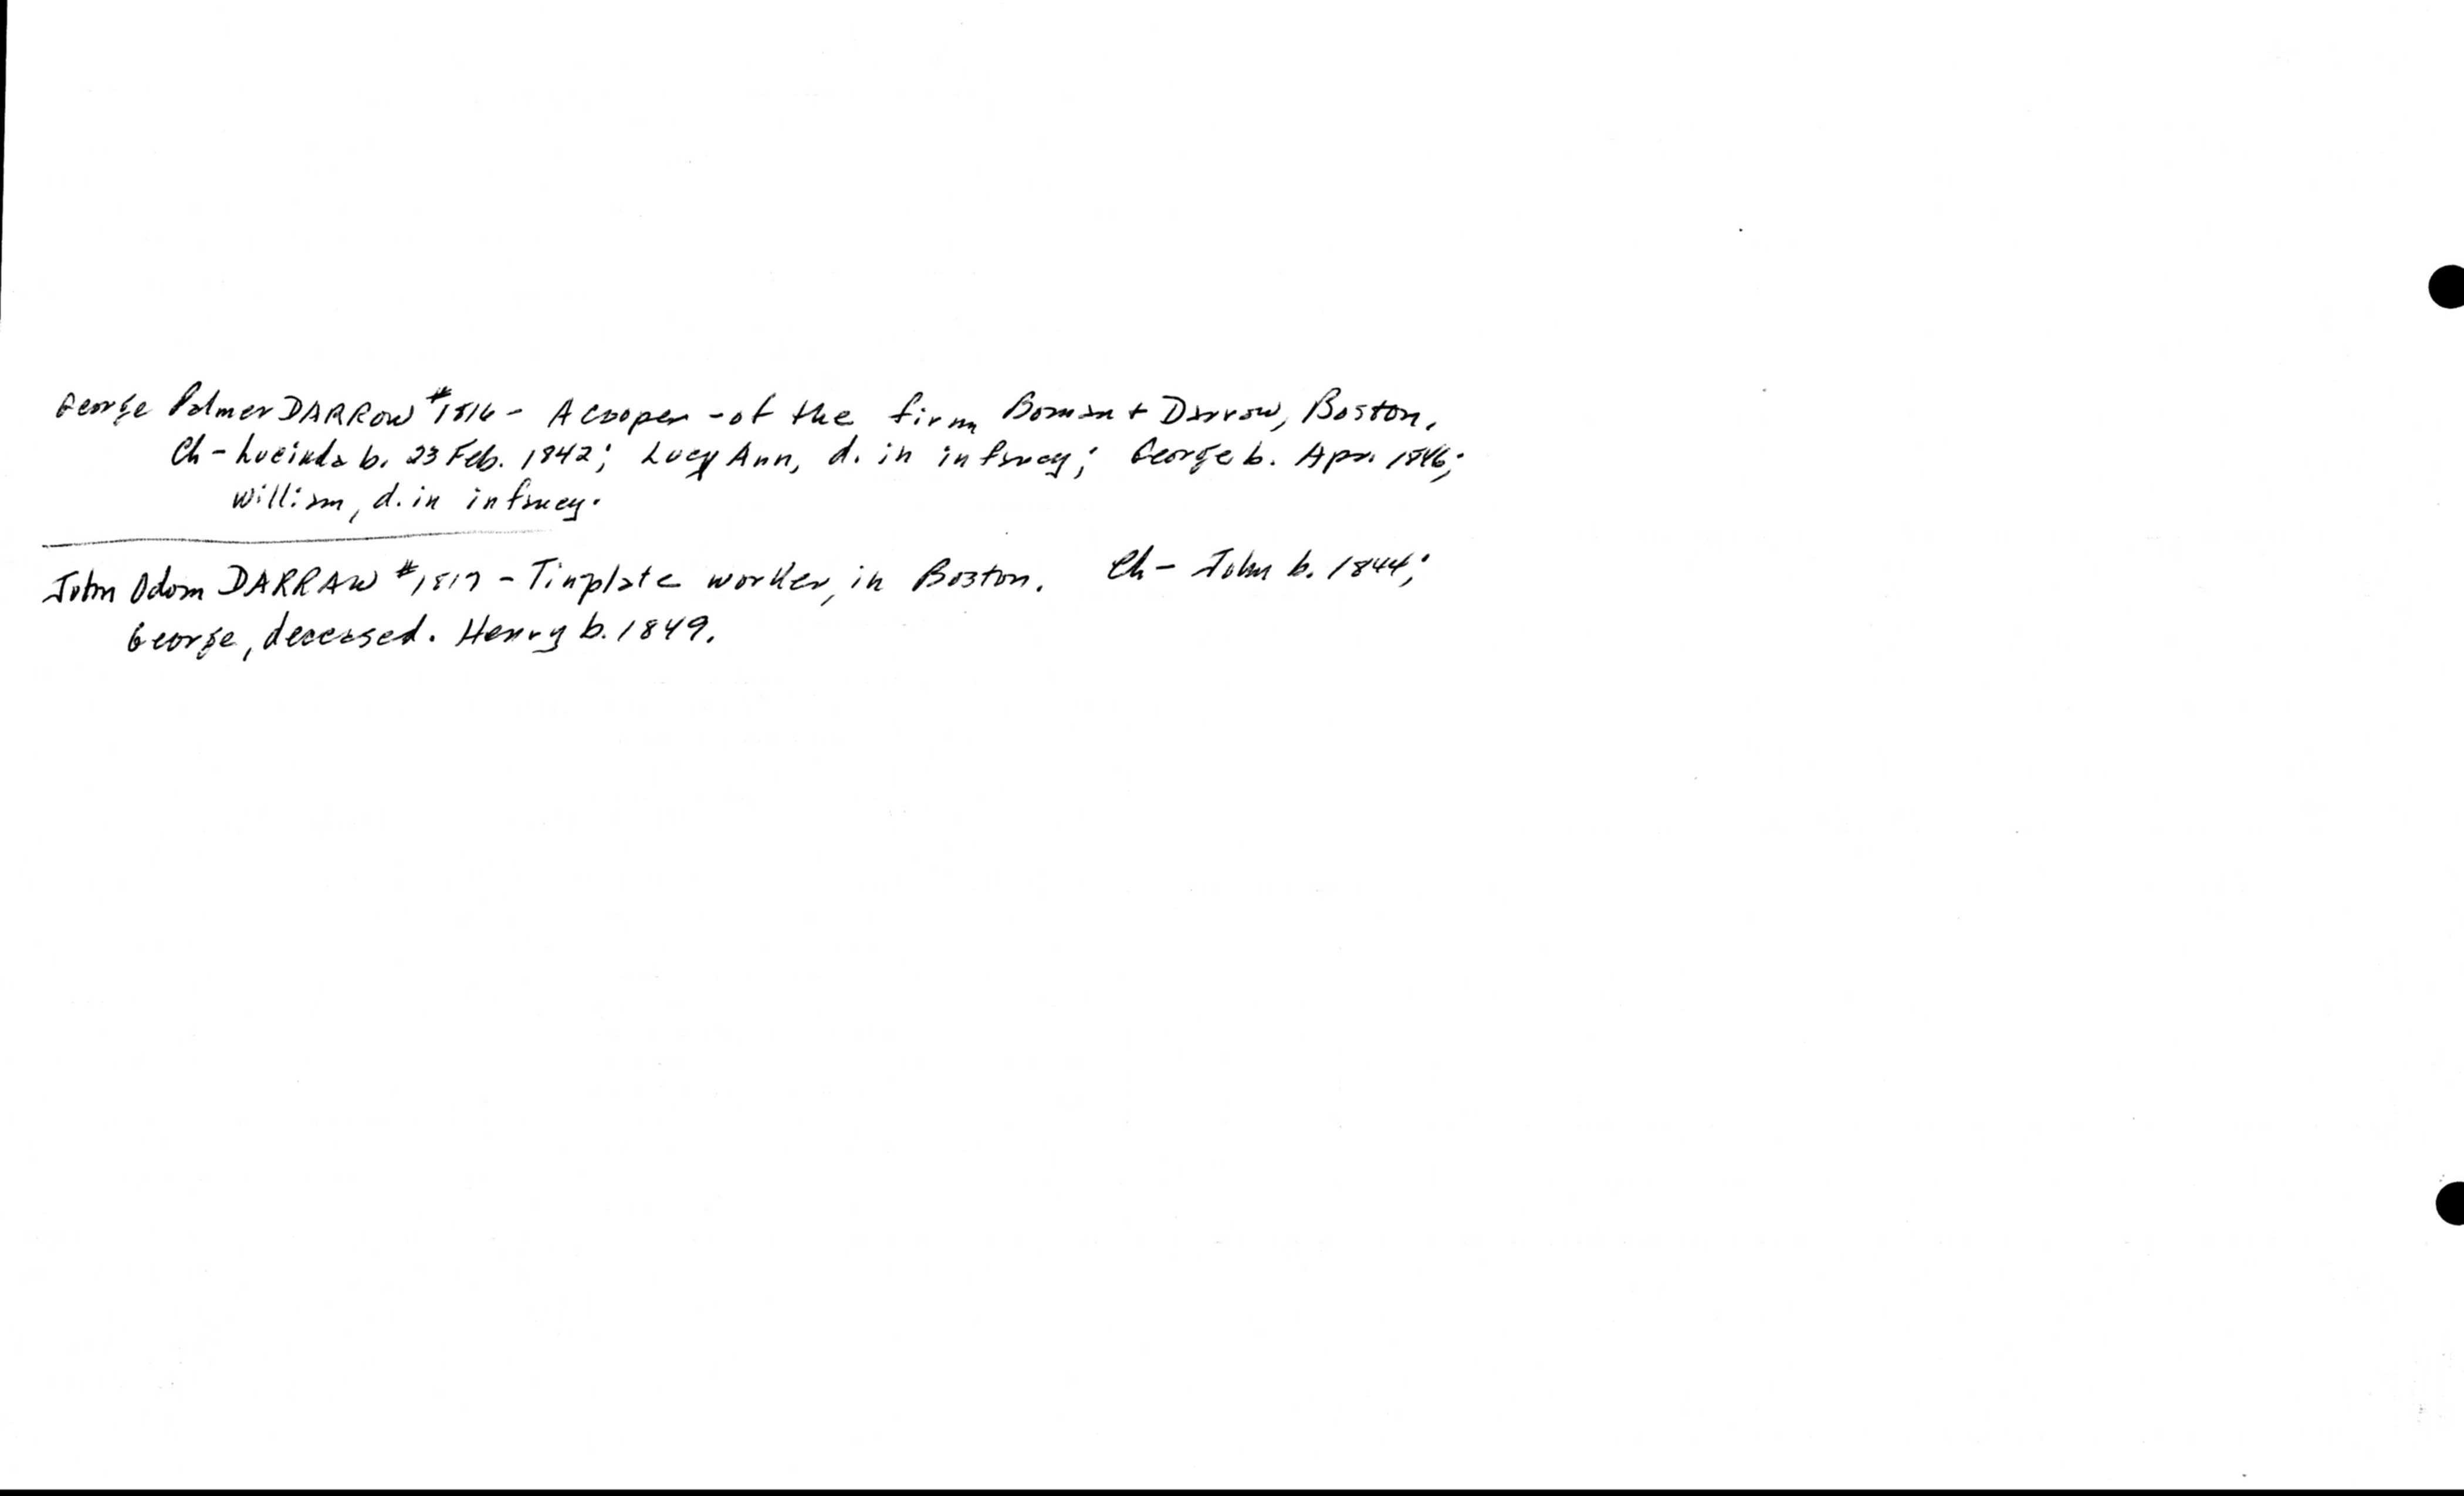 George Palmer DARROW #1816 - A cooper - of the firm Boman + Darrow, Boston.
Ch - Lucinda b. 23 Feb. 1842; Lucy Ann, d. in infancy; George b. Apr. 1846;
William, d. in infancy.
John Odom DARRAW #1817 - Tinplate worker, in Boston. Ch - John b. 1844;
George, deceased. Henry b. 1849.